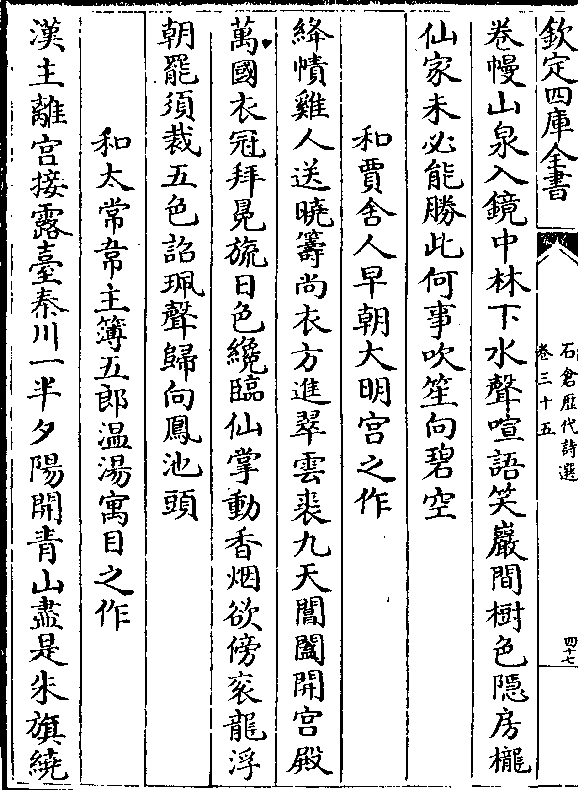 欽定四庫全書
石倉歷代詩選
卷三十五
四十七
卷幔山泉入鏡中林下水聲喧語笑巖間樹色隱房櫳
仙家未必能勝此何事吹笙向碧空
和賈舍人早朝大明宫之作
絳幘雞人送曉籌尚衣方進翠雲裘九天閶闔開宫殿
萬國衣冠拜冕旒日色纔臨仙掌動香烟欲傍衮龍浮
朝罷須裁五色詔珮聲歸向鳳池頭
和太常韋主簿五郎温湯寓目之作
漢主離宫接露臺秦川一半夕陽開青山盡是朱旗繞